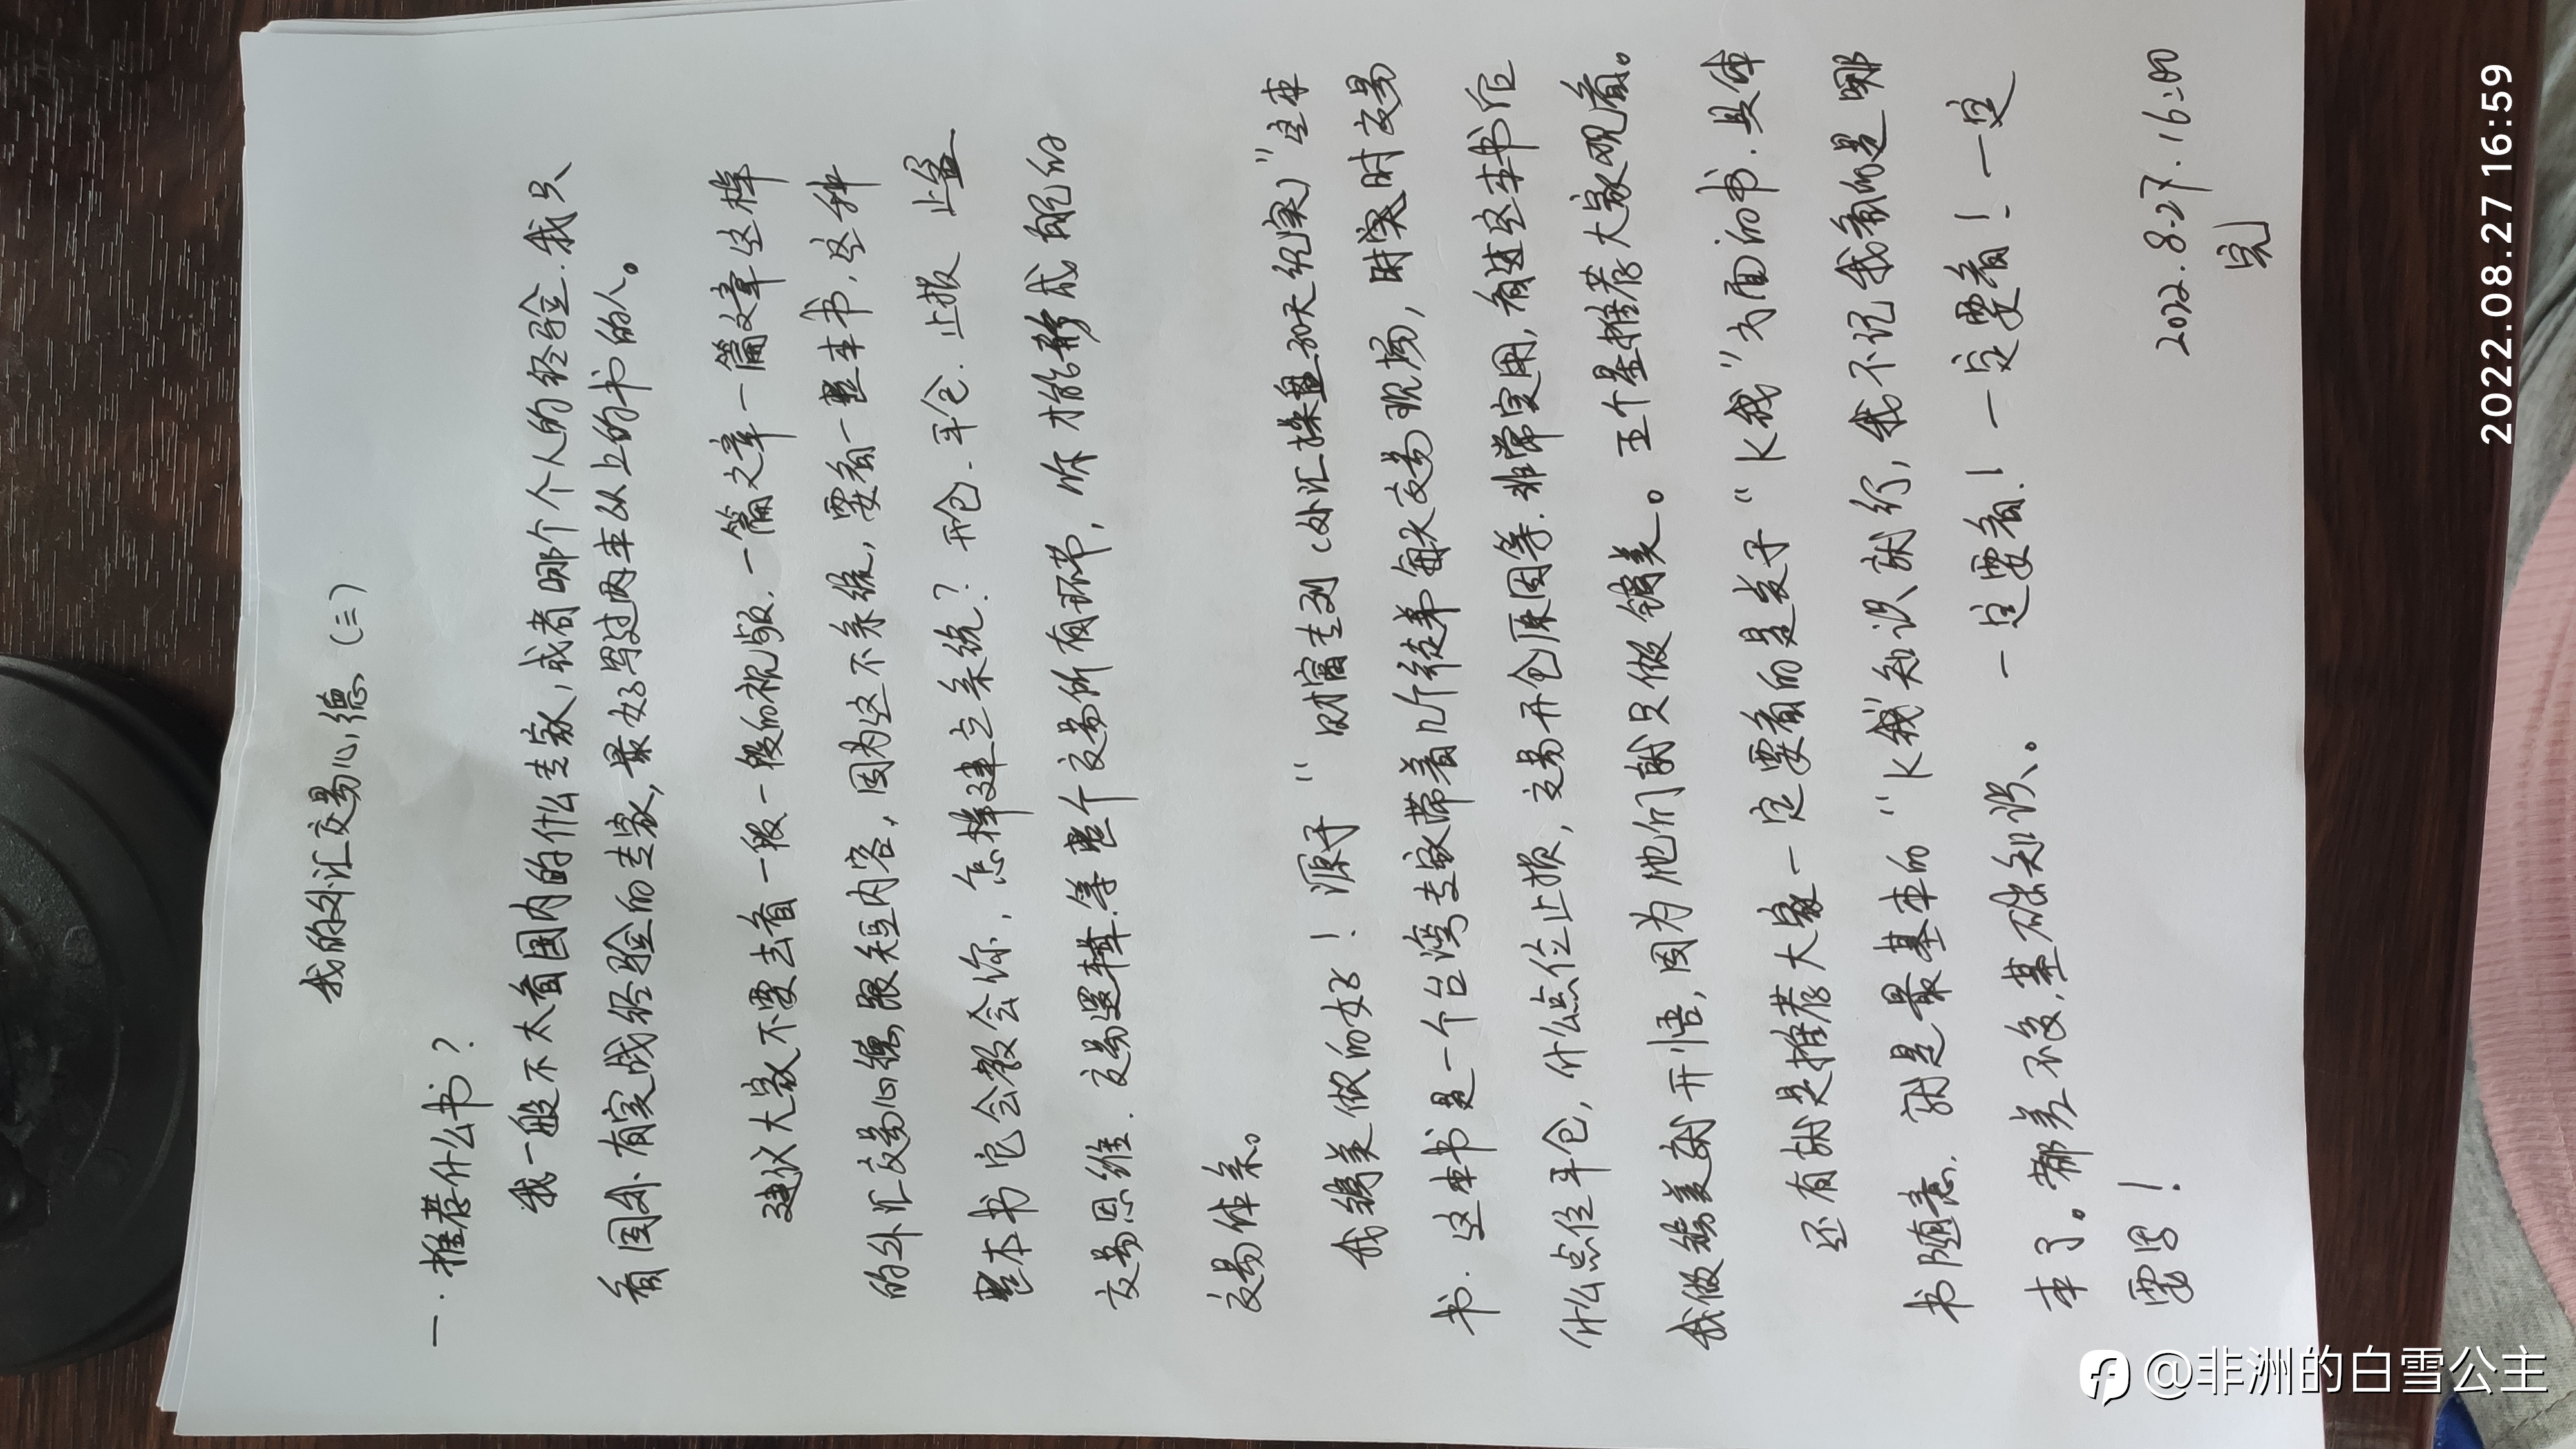 我的外汇交易心德（三）
一.推荐什么书？
我一般不太看国内的什么专家，或者哪个人的经验.我只
看国外有实战经验的专家，最好写过两本以上的书的人。
建议大家不要去看一般一般的视频.一篇文章一篇文章这样
的外汇交易心德跟短内容，因为这不系统，要看一整本书，这种
整本书它会教会你，怎样建立系统？开仓.平仓.止损 止盈
交易思维.交易逻辑.等整个交易所有环节，你才能形成自己的
交易体系。
我镑美做的好！源于"财富专列（外汇操盘30天纪实）"这本
书.这本书是一个台湾专家带着几个徒弟每天交易现场，时实时交易
什么点位平仓，什么点位止损，交易开仓原因等.非常实用，看过这本书后
我做镑美就开悟，因为他们就只做镑美。五个星推荐大家观看。
还有就是推荐大家一定要看的是关于"K线"方面的书.具体
书随意.就是最基本的"K线"知识就行，我不记我看的是哪
本了。都差不多.基础知识。一定要看！一定要看！一定
要写！
2022.8.27.16:00
完
2022.08.27 16:59
@非洲的白雪公主